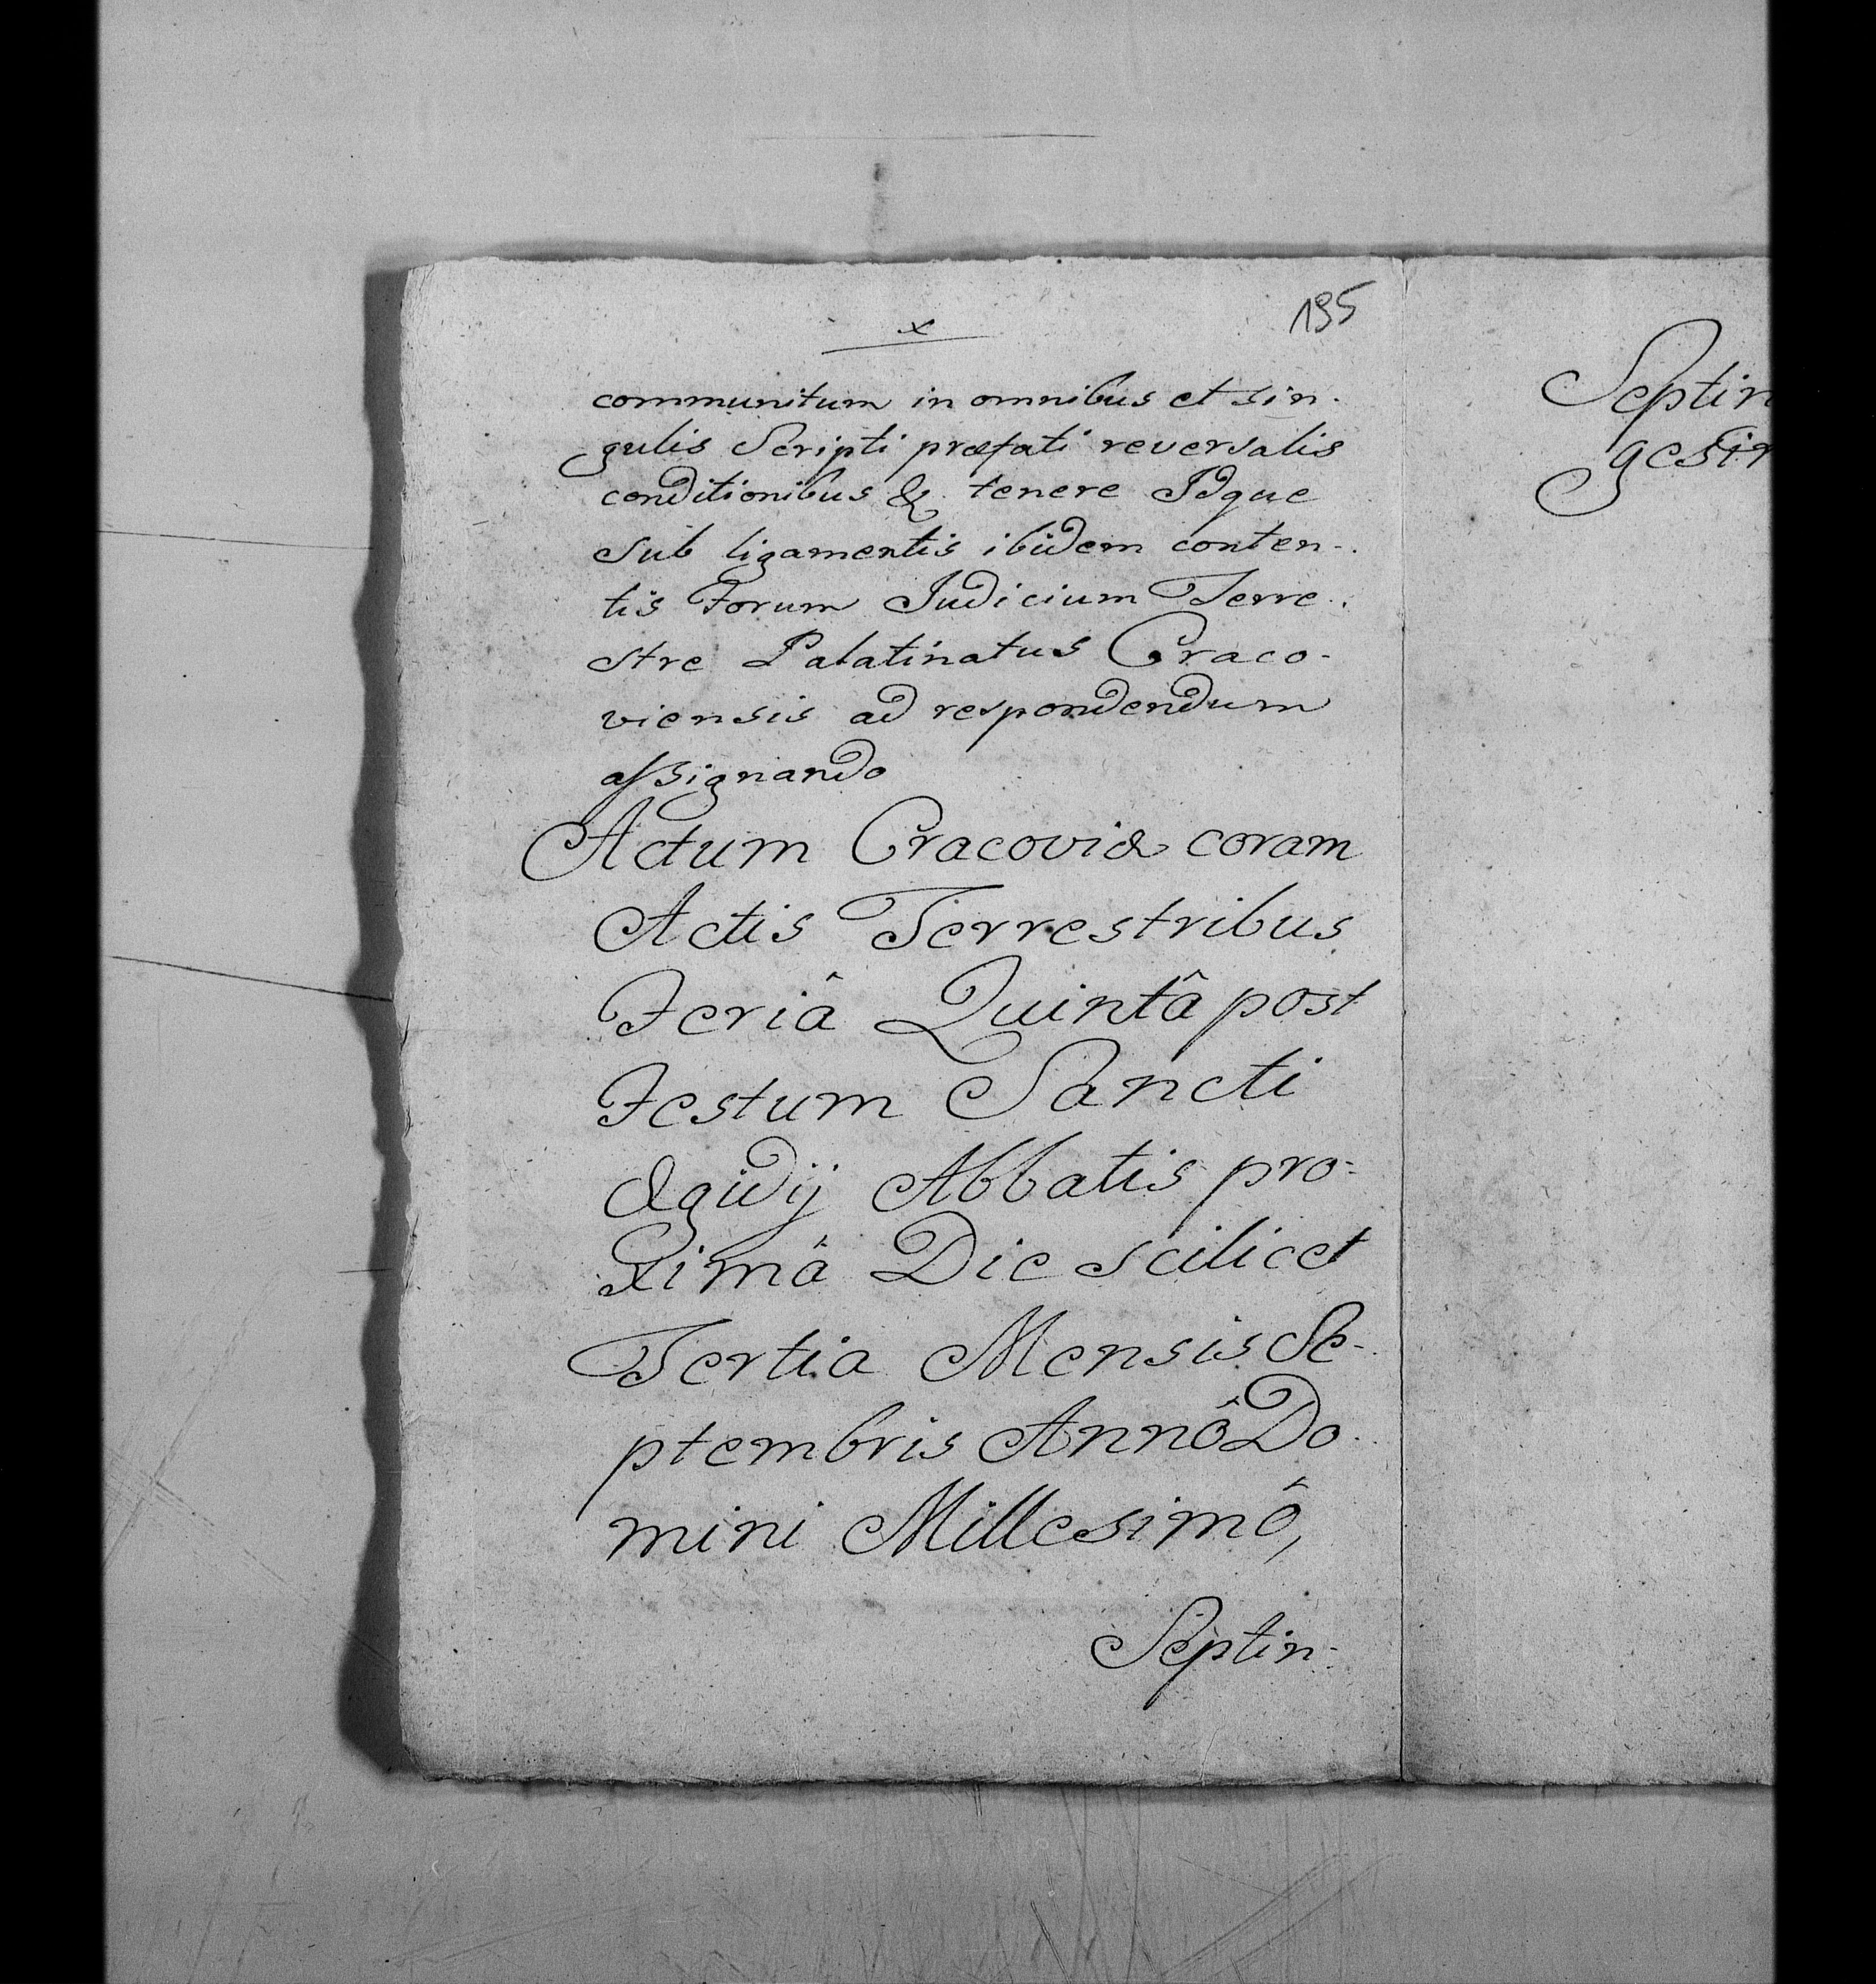 195
x
communitum in omnibus et sin-
gulis Scripti præfati reversalis
conditionibus & tenere Idque
sub ligamentis ibidem conten-
tis Forum Judicium Terre-
stre Palatinatus Craco-
viensis ad respondendum
assignando
Actum Cracoviæ coram
Actis Terrestribus
Feriâ Quintâ post
Festum Sancti
Ægidij Abbatis pro-
ximâ Die scilicet
Tertia Mensis Se-
ptembris Annô Do-
mini Millesimô,
Septin-
Septin
gesi